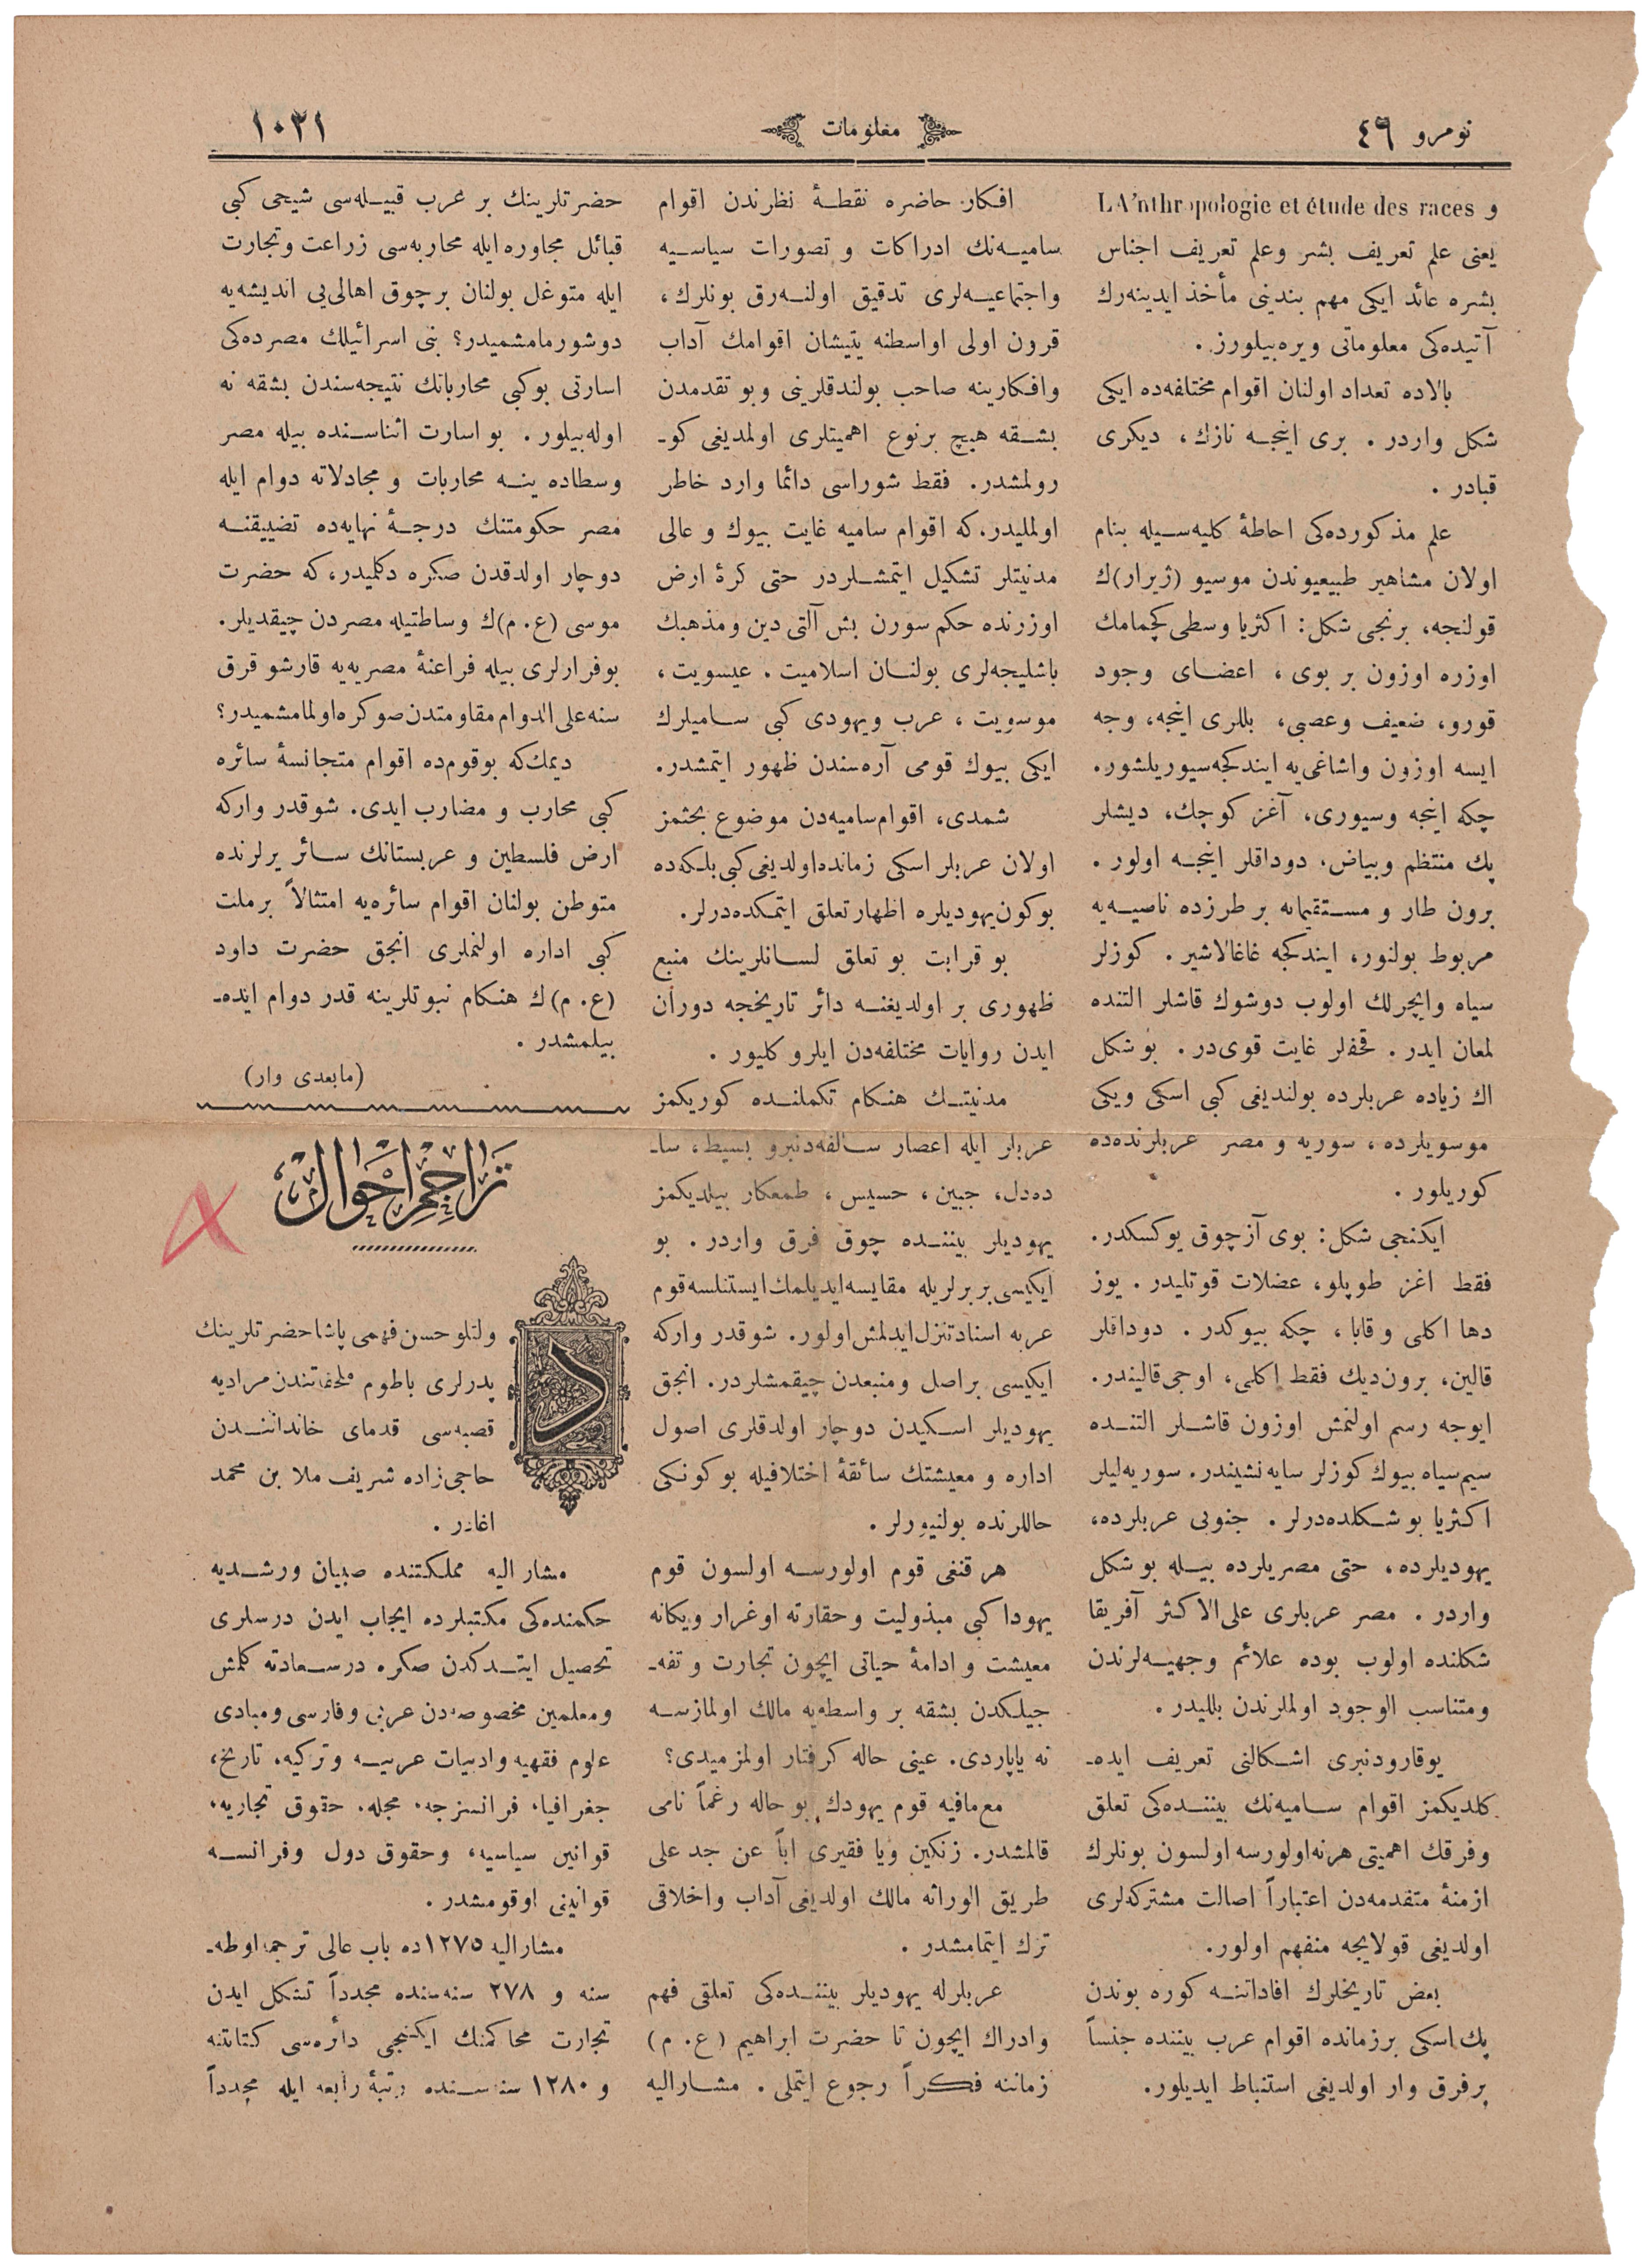 نومرو ٤٦
معلومات
١٠٢١
و LA'nthropologie et étude des races
یعنی علم تعریف بشر وعلم تعریف اجناس
بشره عائد ایکی مهم بندنی مأخذ ایدینه‌رك
آتیده‌کی معلوماتی ویره‌بیلورز.
بالاده تعداد اولنان اقوام مختلفه‌ده ایکی
شکل واردر . بری اینجـه نازك، دیکری
قبادر .
علم مذکورده‌کی احاطهٔ کلیه‌سـیله بنام
اولان مشاهیر طبیعیوندن موسیو (ژیرار)ك
قولنجه، برنجی شکل: اکثریا وسطی کچمامك
اوزره اوزون بر بوی ، اعضـای وجود
قورو، ضعیف وعصبی، بللری اینجه، وجه
ایسه اوزون واشاغی‌یه ایندکجه سیوریلشور.
چکه اینجه وسیوری، آغز کوچك، دیشلر
پك منتظم وبیاض، دوداقلر اینجـه اولور .
برون طار و مسـتقیمانه بر طرزده ناصیـه‌یه
مربوط بولنور، ایندکجه غاغالاشیر . کوزلر
سیاه وایچرلك اولوب دوشوك قاشلر التنده
لمعان ایدر . قحفلر غایت قوی‌در . بو شکل
اك زیاده عربلرده بولندیغی کبی اسکی ویکی
موسویلرده ، سوریه و مصر عربلرنده‌ده
کوریلور .
ایکنجی شکل: بوی آز چوق یوکسکدر.
فقط اغز طوپلو، عضلات قوتلیدر . یوز
دها اکلی و قابا ، چکه بیوکدر . دوداقلر
قالین، برون‌دیك فقط اکلی، اوجی قالیندر.
ایوجه رسم اولنمش اوزون قاشـلر التنـده
سیم‌سیاه بیوك کوزلر سایه نشیندر. سوریه‌لیلر
اکثریا بو شـکلده‌درلر . جنوبی عربلرده،
یهودیلرده ، حتی مصریلرده بیـله بو شکل
واردر . مصر عربلری علی‌الاکثر آفریقا
شکلنده اولوب بوده علائم وجهیـه‌لرندن
ومتناسب الوجود اولملرندن بللیدر .
یوقارودنبری اشـکالنی تعریف ایده‌ـ
کلدیکمز اقوام سـامیه‌نك بیننـده‌کی تعلق
وفرقك اهمیتی هرنه‌اولورسه اولسون بونلرك
ازمنهٔ متقدمه‌دن اعتباراً اصالت مشترکه‌لری
اولدیغی قولایجه منفهم اولور.
بعض تاریخلرك افاداتنـه کوره بوندن
پك‌اسکی برزمانده اقوام عرب بیننده جنساً
برفرق وار اولدیغی استنباط ایدیلور.
افکار حاضره نقطـهٔ نظرندن اقوام
سامیـه‌نك ادراکات و تصورات سیاسـیه
واجتماعیـه‌لری تدقیق اولنـه‌رق بونلرك،
قرون اولی اواسطنه یتیشان اقوامك آداب
وافکارینه صاحب بولندقلرینی وبو تقدمدن
بشـقه هیچ برنوع اهمیتلری اولمدیغی کوـ
رولمشدر. فقط شوراسی دائما وارد خاطر
اولملیدر،که اقوام سامیه غایت بیوك و عالی
مدنیتلر تشکیل ایتمشـلردر حتی کرهٔ ارض
اوزرنده حکم سورن بش آلتی دین ومذهبك
باشلیجه‌لری بولنـان اسلامیت . عیسویت ،
موسویت ، عرب ویهودی کبی سـامیلرك
ایکی بیوك قومی آره‌سندن ظهور ایتمشدر.
شمدی، اقوام‌سامیه‌دن موضوع بحثمز
اولان عربلر اسکی زمانده‌اولدیغی کبی‌بلکه‌ده
بوکون‌یهودیلره اظهار تعلق ایتمکده‌درلر.
بو قرابت بو تعلق لسـانلرینك منبع
ظهوری بر اولدیغنـه دائر تاریخجه دوران
ایدن روایات مختلفه‌دن ایلرو کلیور .
مدنیتـك هنـکام تکملنـده کوریکمز
عربلر ایله اعصار سـالفه‌دنبرو بسیط، ساـ
ده‌دل، جبین ، حسیس ، طمعکار بیلدیکمز
یهودیلر بیننـده چوق فرق واردر . بو
ایکیسی بر برلریله مقایسه ایدیلمك ایستنلسه قوم
عربه اسناد تنزل ایدلمش اولور. شوقدر وارکه
ایکیسی براصل ومنبعدن چیقمشلردر. انجق
یهودیلر اسـکیدن دوچار اولدقلری اصول
اداره و معیشتك سائقهٔ اختلافیله بوکونـکی
حاللرنده بولنیورلر .
هر قنغی قوم اولورسـه اولسون قوم
یهودا کبی مبذولیت وحقارته اوغرار ویکانه
معیشت و ادامهٔ حیاتی ایچون تجارت و تفه‌ـ
جیلکدن بشقه بر واسطه‌یه مالك اولمازسـه
نه یاپاردی. عینی حاله کرفتار اولمزمیدی؟
مع‌مافیه قوم یهودك بو حاله رغماً نامی
قالمشدر. زنکین ویا فقیری اباً عن جد علی
طریق الوراثه مالك اولدیغی آداب واخلاقی
ترك ایتمامشدر .
عربلرله یهودیلر بیننـده‌کی تعلقی فهم
وادراك ایچون تا حضرت ابراهیم (ع. م)
زماننه فکـراً رجوع ایتملی . مشـارالیه
حضرتلرینك بر عرب قبیـله‌سی شیحی کبی
قبائل مجاوره ایله محاربه‌سی زراعت وتجارت
ایله متوغل بولنان برچوق اهالی‌یی اندیشه‌یه
دوشورمامشمیدر؟ بنی اسرائیلك مصرده‌کی
اسارتی بوکبی محارباتك نتیجه‌سندن بشقه نه
اوله‌بیلور . بو اسارت اثناسـنده بیله مصر
وسطاده ینـه محاربات و مجادلاته دوام ایله
مصر حکومتنك درجـهٔ نهایه‌ده تضییقنـه
دوچار اولدقدن صکره دکلمیدر،که حضرت
موسی (ع. م)ك وساطتیله مصردن چیقدیلر.
بوفرارلری بیله فراعنهٔ مصریه‌یه قارشو قرق
سنه علی‌الدوام مقاومتدن صوکره اولمامشمیدر؟
دیمك‌که بوقوم‌ده اقوام متجانسهٔ سائره
کبی محارب و مضارب ایدی. شوقدر وارکه
ارض فلسطین و عربستانك سـائر یرلرنده
متوطن بولنان اقوام سائره‌یه امتثالاً برملت
کبی اداره اولنملری انجق حضرت داود
(ع. م)ك هنکام نبوتلرینه قدر دوام ایده‌ـ
بیلمشدر .
(مابعدی وار)
تراجم احوال
د
ولتلو حسن فهمی پاشا حضرتلرینك
پدرلری باطوم ملحقاتندن مرادیه
قصبه‌سی قدمای خاندانـندن
حاجی‌زاده شریف ملا بن محمد
اغادر .
مشار الیه مملکتنده صبیان ورشـدیه
حکمنده‌کی مکتبلرده ایجاب ایدن درسلری
تحصیل ایتـدکدن صکره درسـعادته کلمش
ومعلمین مخصوصه‌دن عربی وفارسی ومبادی
علوم فقهیه وادبیات عربیـه وترکیه، تاریخ،
جغرافیا، فرانسزجه، مجله، حقوق تجاریه،
قوانین سیاسیه، وحقوق دول وفرانسـه
قوانینی اوقومشدر .
مشارالیه ١٢٧٥ده باب عالی ترجمه اوطه‌ـ
سنه و ٢٧٨ سنه‌سنده مجدداً تشکل ایدن
تجارت محاکمنك ایکـنجی دائره‌سی کتابتنه
و ١٢٨٠ سنه‌سـنده رتبهٔ رابعه ایله مجدداً